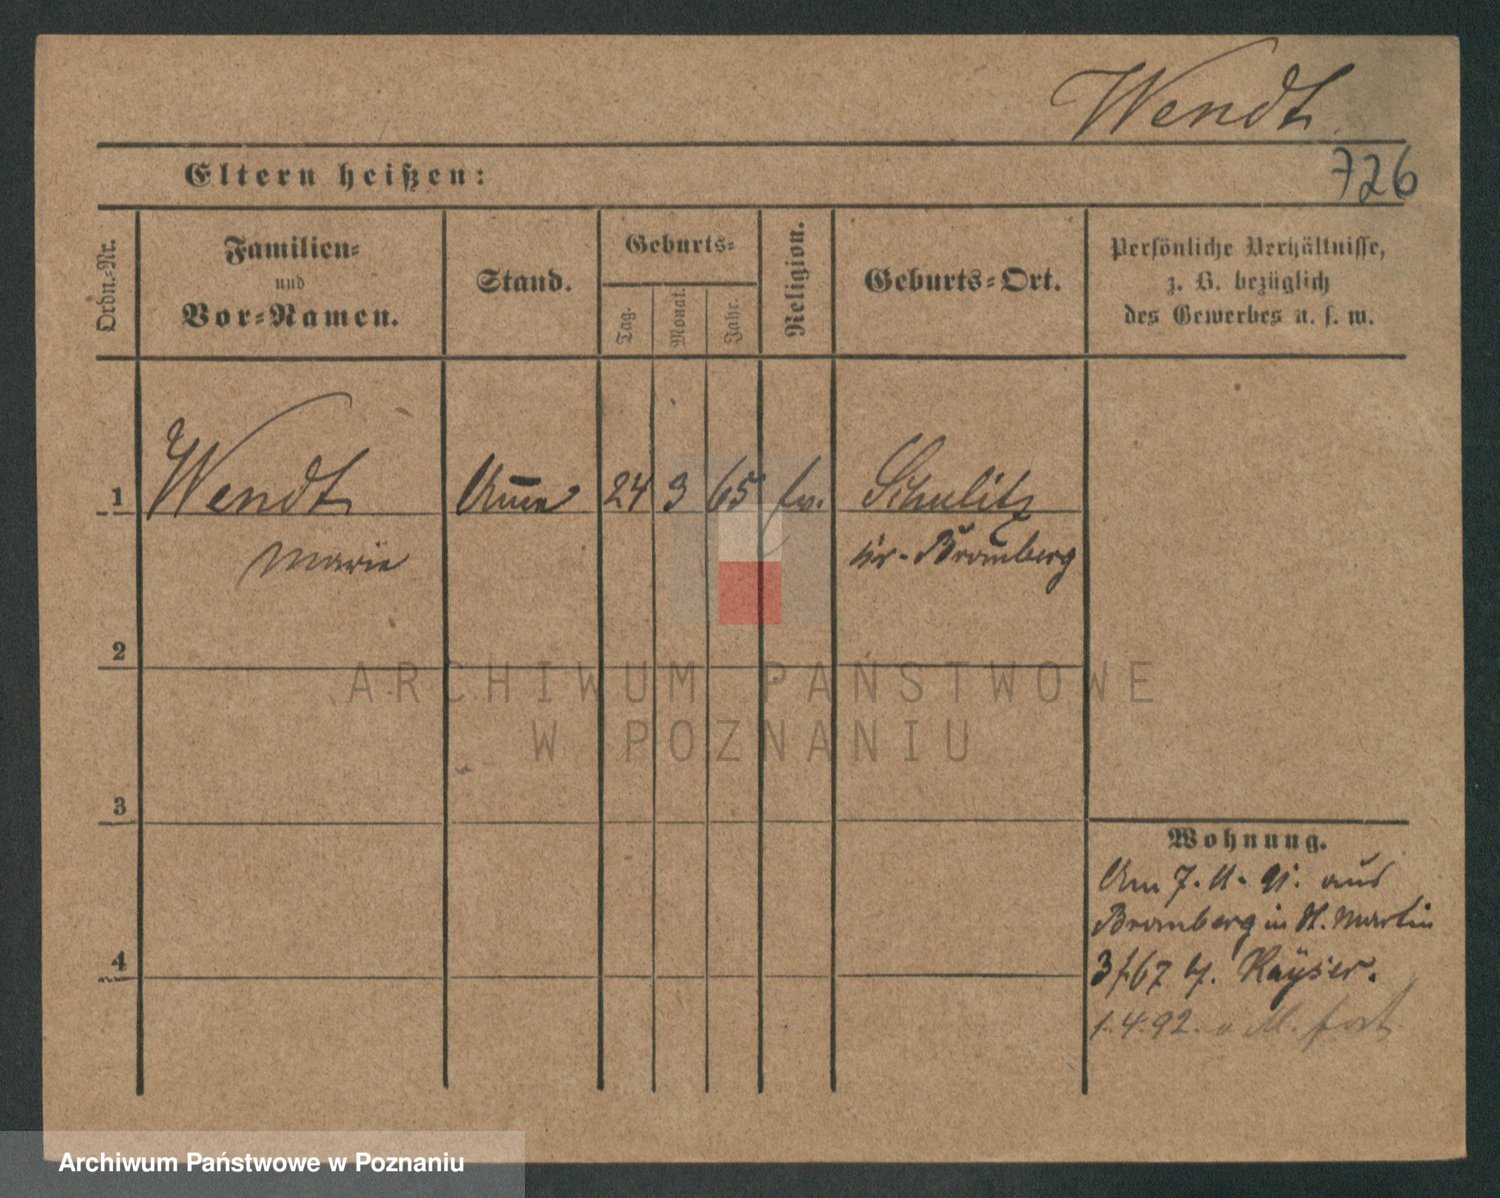 Wendt
726
Eltern heißen:
Ordn.-Nr.
Familien-
und
Vor-Namen.
Stand.
Geburts-
Tag.
Monat.
Jahr.
Religion.
Geburts-Ort.
Persönliche Verhältnisse,
z. B. bezüglich
des Gewerbes u. s. w.
1 Wendt Amme 24 3 65 ev. Schulitz
Marie Kr. Bromberg
2
3
4
Wohnung.
Am 7. 11. 91. aus
Bromberg in St. Martin
3/67 Kayser.
1.4.92. fort
ARCHIWUM PAŃSTWOWE
W POZNANIU
Archiwum Państwowe w Poznaniu